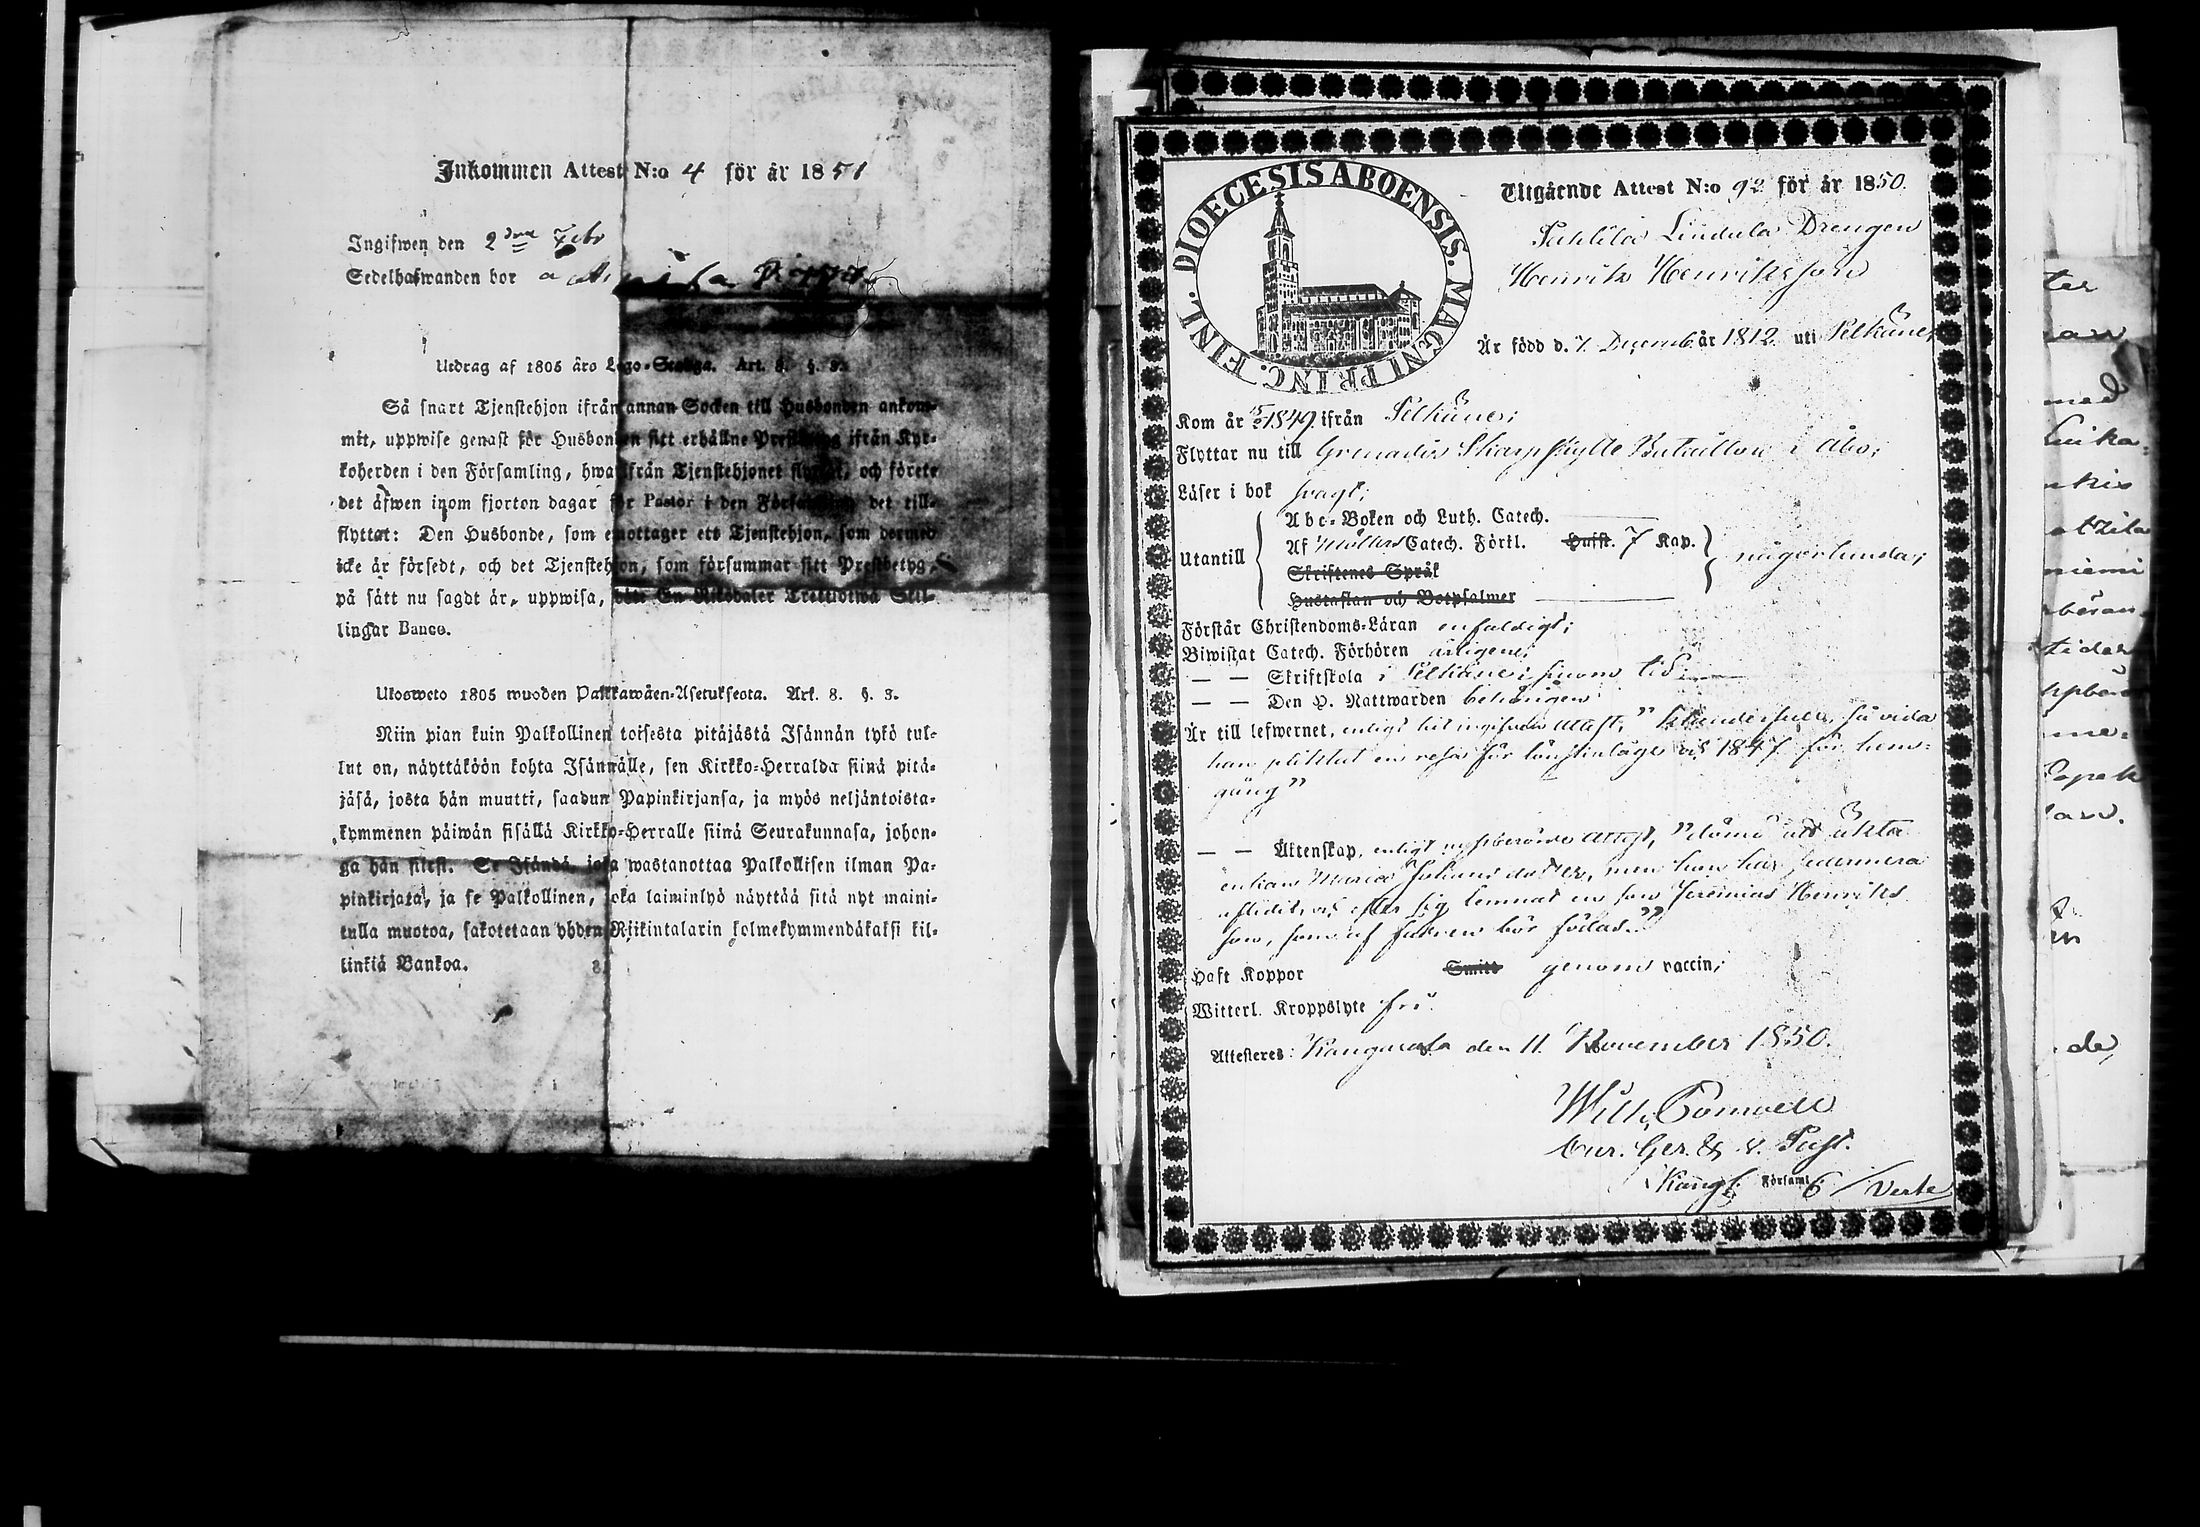 Inkommen Attest N:o 4 för år 1851
Ingifwen den 2dra Febr
Sedelhafwanden bor
Utdrag af 1805 års Lego-Stadga. Art. 8. §. 3.
Så snart Tjenstehjon ifrån annan Socken till Husbonden ankom-
mit, uppwise genast för Husbonden sitt erhållne Prestbetyg ifrån Kyr-
koherden i den Församling, hwarifrån Tjenstehjonet flyttat, och förete
det äfwen inom fjorton dagar för Pastor i den Församling det till-
flyttat: Den Husbonde, som emottager ett Tjenstehjon, som dermed
icke är försedt, och det Tjenstehjon, som försummar sitt Prestbetyg,
på sätt nu sagdt är, uppwisa, böte En Riksdaler Trettiotwå Skil-
lingar Banco.
Ulosweto 1805 wuoden Palkkawäen-Asetuksesta. Art. 8. §. 3.
Niin pian kuin Palkollinen toisesta pitäjästä Isännän tykö tul-
lut on, näyttäköön kohta Isännälle, sen Kirkko-Herralda siinä pitä-
jäsä, josta hän muutti, saadun Papinkirjansa, ja myös neljäntoista-
kymmenen päiwän sisällä Kirkko-Herralle siinä Seurakunnasa, johon-
ga hän siirsi. Se Isändä, joka wastanottaa Palkollisen ilman Pa-
pinkirjata, ja se Palkollinen, joka laiminlyö näyttää sitä nyt maini-
tulla muotoa, sakotetaan yhden Riikintalarin kolmekymmendäkaksi kil-
linkiä Bankoa.
DIOECESIS ABOENSIS. MAGNI PRINC. FINL.
Utgående Attest N:o 92 för år 1850.
Lindula Drengen
Henrik Henriksson
Är född d. 7. Decemb år 1812 uti Pelkäne,
Kom år 15/2 1849 ifrån Pelkäne;
Flyttar nu till Grenadiers Skarpskytte Bataillon i Åbo;
Läser i bok svagt;
Utantill
Abc-Boken och Luth. Catech.
Af Möllers Catech. Förkl. Husst. 7 Kap.
Skriftenes Språk
Hustaflan och Botpsalmer
någorlunda;
Förstår Christendoms-Läran enfaldigt;
Biwistat Catech. Förhören årligen;
— — Skriftskola i Pelkäne i sinom tid.
— — Den H. Nattwarden behörigen
Är till lefwernet, enligt hit ingifvden attest, " så vida
han pliktat en resa för lönskaläge och 1847 för hem-
gång"
— — Äktenskap, enligt attest, "dömd att äkta
enkan Maria Johansdotter, men hon har sedermera
aflidit, och efter sig lemnat en son Jeremias Henriks
son, som af fadren bör födas."
Haft Koppor Smitt genom vaccin;
Witterl. Kroppslyte fri.
Attesteras: Kangasala den 11. November 1850.
Wilh.
Cur. Ger. & v. Past.
Kangs. Församl. Verte